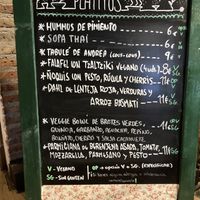 PLATITOS
* HUMMUS DE PIMIENTO — 6€ V SG
* SOPA THAI — 5€ V SG
* TABULÉ DE ANDREA (COUS-COUS) — 6€ V
* FALAFEL CON TZATZIKI VEGANO (4uds.) 8€
* ÑOQUIS CON PESTO, RÚCULA Y CHERRIS — 11€
* DAHL DE LENTEJA ROJA, VERDURAS Y — 11€
ARROZ BASMATI
* VEGGIE BOWL DE BROTES VERDES,
QUINOA, GARBANZO, AGUACATE, PEPINO,
BONIATO, CHERRY Y SALSA CACAHUETE
* PARMIGIANA DE BERENJENA ASADA, TOMATE,
MOZZARELLA, PARMESANO Y PESTO — 11€
V - VEGANO
SG - SIN GLUTEN